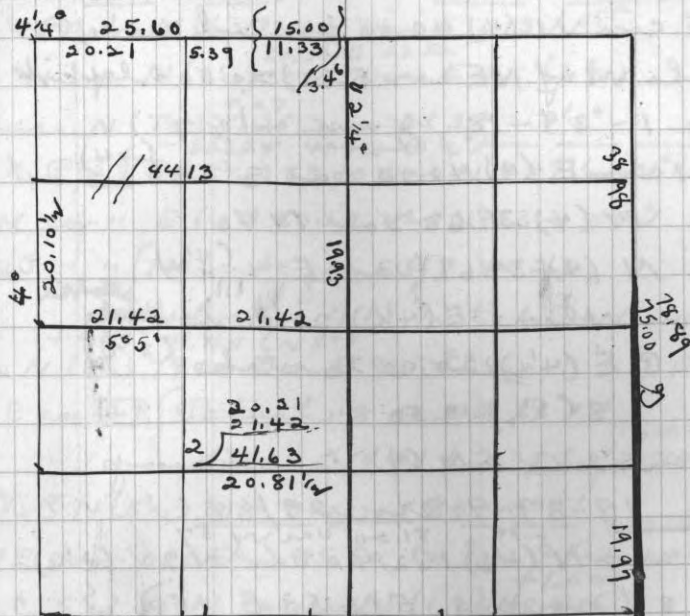 4¼° 25.60 { 15.00 }
20.21 5.39 { 11.33 }
3.46
44 13
38.98
20.10½
19.93
4°
21.42 21.42
5°5'
78.89
75.00
20.21
21.42
2 41.63
20.81½
19.97